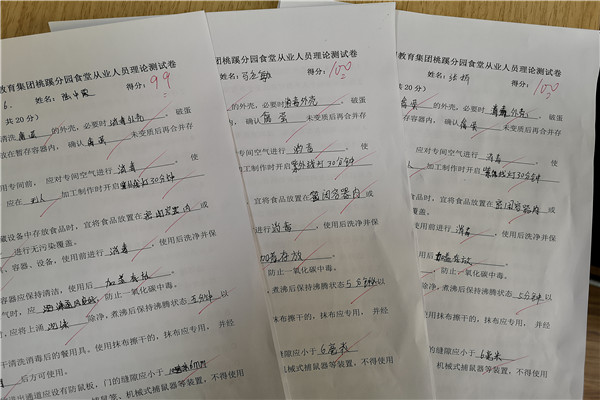 教育集团桃蹊分园食堂从业人员理论测试卷
姓名: 得分: 99
共20分)
清洗禽蛋的外壳,必要时消毒外壳。破蛋
放在暂存容器内,确认禽蛋未变质后再合并存
用专间前,应对专间空气进行消毒。使
应在 加工制作时开启紫外线灯30分钟
藏设备中存放食品时,宜将食品放置在密闭容器内或
进行无污染覆盖。
、容器、设备,使用前进行消毒,使用后洗净并保
容器应保持清洁,使用后加盖存放。
气时,应 ,防止一氧化碳中毒。
,煮沸后保持沸腾状态5分钟以
时,应将上涌 除净,
干清洗消毒后的餐用具、使用抹布擦干的,抹布应专用,并经
后方可使用。
进出通道应设有防鼠板,门的缝隙应小于6mm
鼠笼、机械式捕鼠器等装置,不得使用
团桃蹊分园食堂从业人员理论测试卷
姓名: 得分: 100
的外壳,必要时消毒外壳。破蛋
内,确认禽蛋未变质后再合并存
专间空气进行消毒。使
加工制作时开启紫外线灯30分钟
宜将食品放置在密闭容器内或
进行消毒,使用后洗净并保
加盖存放。
防止一氧化碳中毒。
煮沸后保持沸腾状态5分钟以
抹布擦干的,抹布应专用,并经
缝隙应小于6毫米
机械式捕鼠器等装置,不得使用
教育集团桃蹊分园食堂从业人员理论测试卷
姓名: 得分: 100
共20分)
禽蛋的外壳,必要时消毒外壳。破蛋
容器内,确认禽蛋未变质后再合并存
应对专间空气进行消毒。使
加工制作时开启紫外线灯30分钟
时,宜将食品放置在密闭容器内或
覆盖。
用前进行消毒,使用后洗净并保
用后加盖存放。
,防止一氧化碳中毒。
,煮沸后保持沸腾状态5分钟以
使用抹布擦干的,抹布应专用,并经
缝隙应小于6毫米
、机械式捕鼠器等装置,不得使用